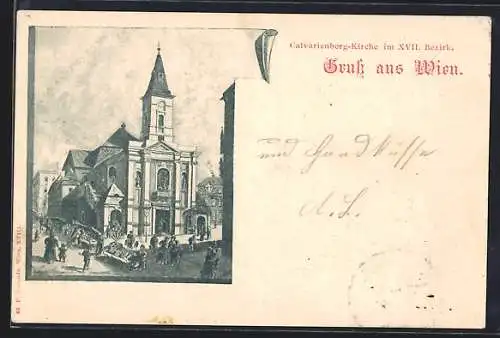 Calvarienberg-Kirche im XVII. Bezirk.
Gruß aus Wien.
und Handküsse
A. L.
Wien, XVII.